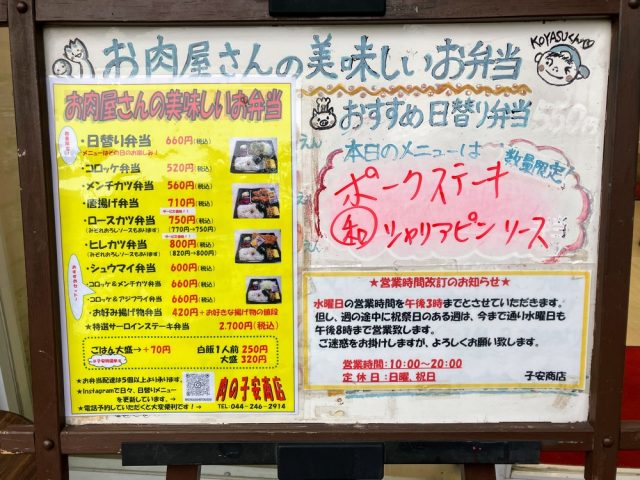 お肉屋さんの美味しいお弁当
KOYASUくん
おすすめ日替り弁当
本日のメニューは
数量限定
ポークステーキ
和 シャリアピンソース
お肉屋さんの美味しいお弁当
数量限定
・日替り弁当 660円(税込)
メニューはその日のお楽しみ!
・コロッケ弁当 520円(税込)
・メンチカツ弁当 560円(税込)
・唐揚げ弁当 710円(税込)
サービス価格!!
・ロースカツ弁当 750円(税込)
(みぞれおろしソースもあります) (770円→750円)
サービス価格!!
・ヒレカツ弁当 800円(税込)
(みぞれおろしソースもあります) (820円→800円)
・シュウマイ弁当 600円(税込)
おすすめセット!
・コロッケ&メンチカツ弁当 670円(税込)
・コロッケ&アジフライ弁当 680円(税込)
・お好み揚げ物弁当 420円+お好きな揚げ物の値段
★特選サーロインステーキ弁当 2.700円(税込)
ごはん大盛→+70円 白飯1人前 250円
大盛 320円
★お弁当配達は5個以上より承ります。
★Instagramで日々、日替りメニュー
を更新しています。→
★電話予約していただくと大変便利です!→
肉の子安商店
TEL-044-246-2914
★営業時間改訂のお知らせ★
水曜日の営業時間を午後3時までとさせていただきます。
但し、週の途中に祝祭日のある週は、今まで通り水曜日も
午後8時まで営業致します。
ご迷惑をお掛けしますが、よろしくお願い致します。
営業時間:10:00~20:00
定休日:日曜、祝日
子安商店